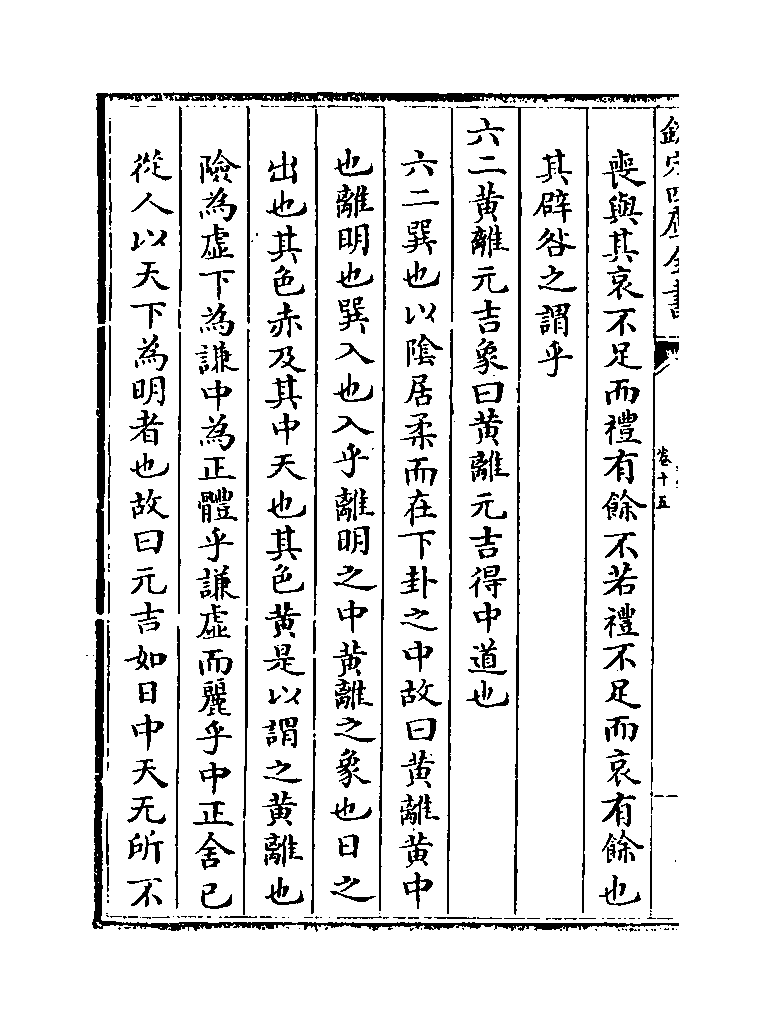 欽定四庫全書
卷十五
喪與其哀不足而禮有餘不若禮不足而哀有餘也
其辟咎之謂乎
六二黄離元吉象曰黄離元吉得中道也
六二巽也以隂居柔而在下卦之中故曰黄離黄中
也離明也巽入也入乎離明之中黄離之象也日之
出也其色赤及其中天也其色黄是以謂之黄離也
險為虚下為謙中為正體乎謙虚而麗乎中正舍已
從人以天下為明者也故曰元吉如日中天无所不